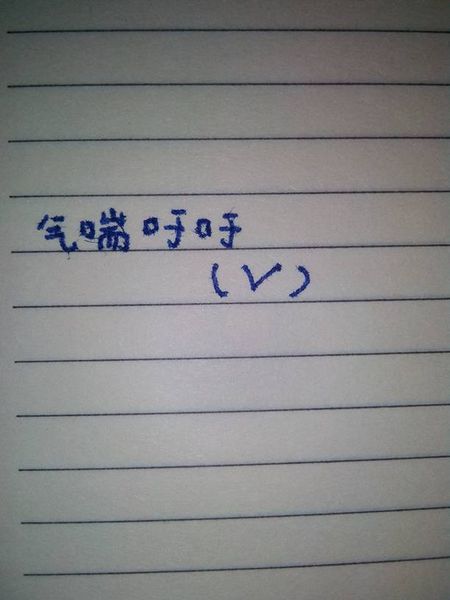 气喘吁吁
(√)